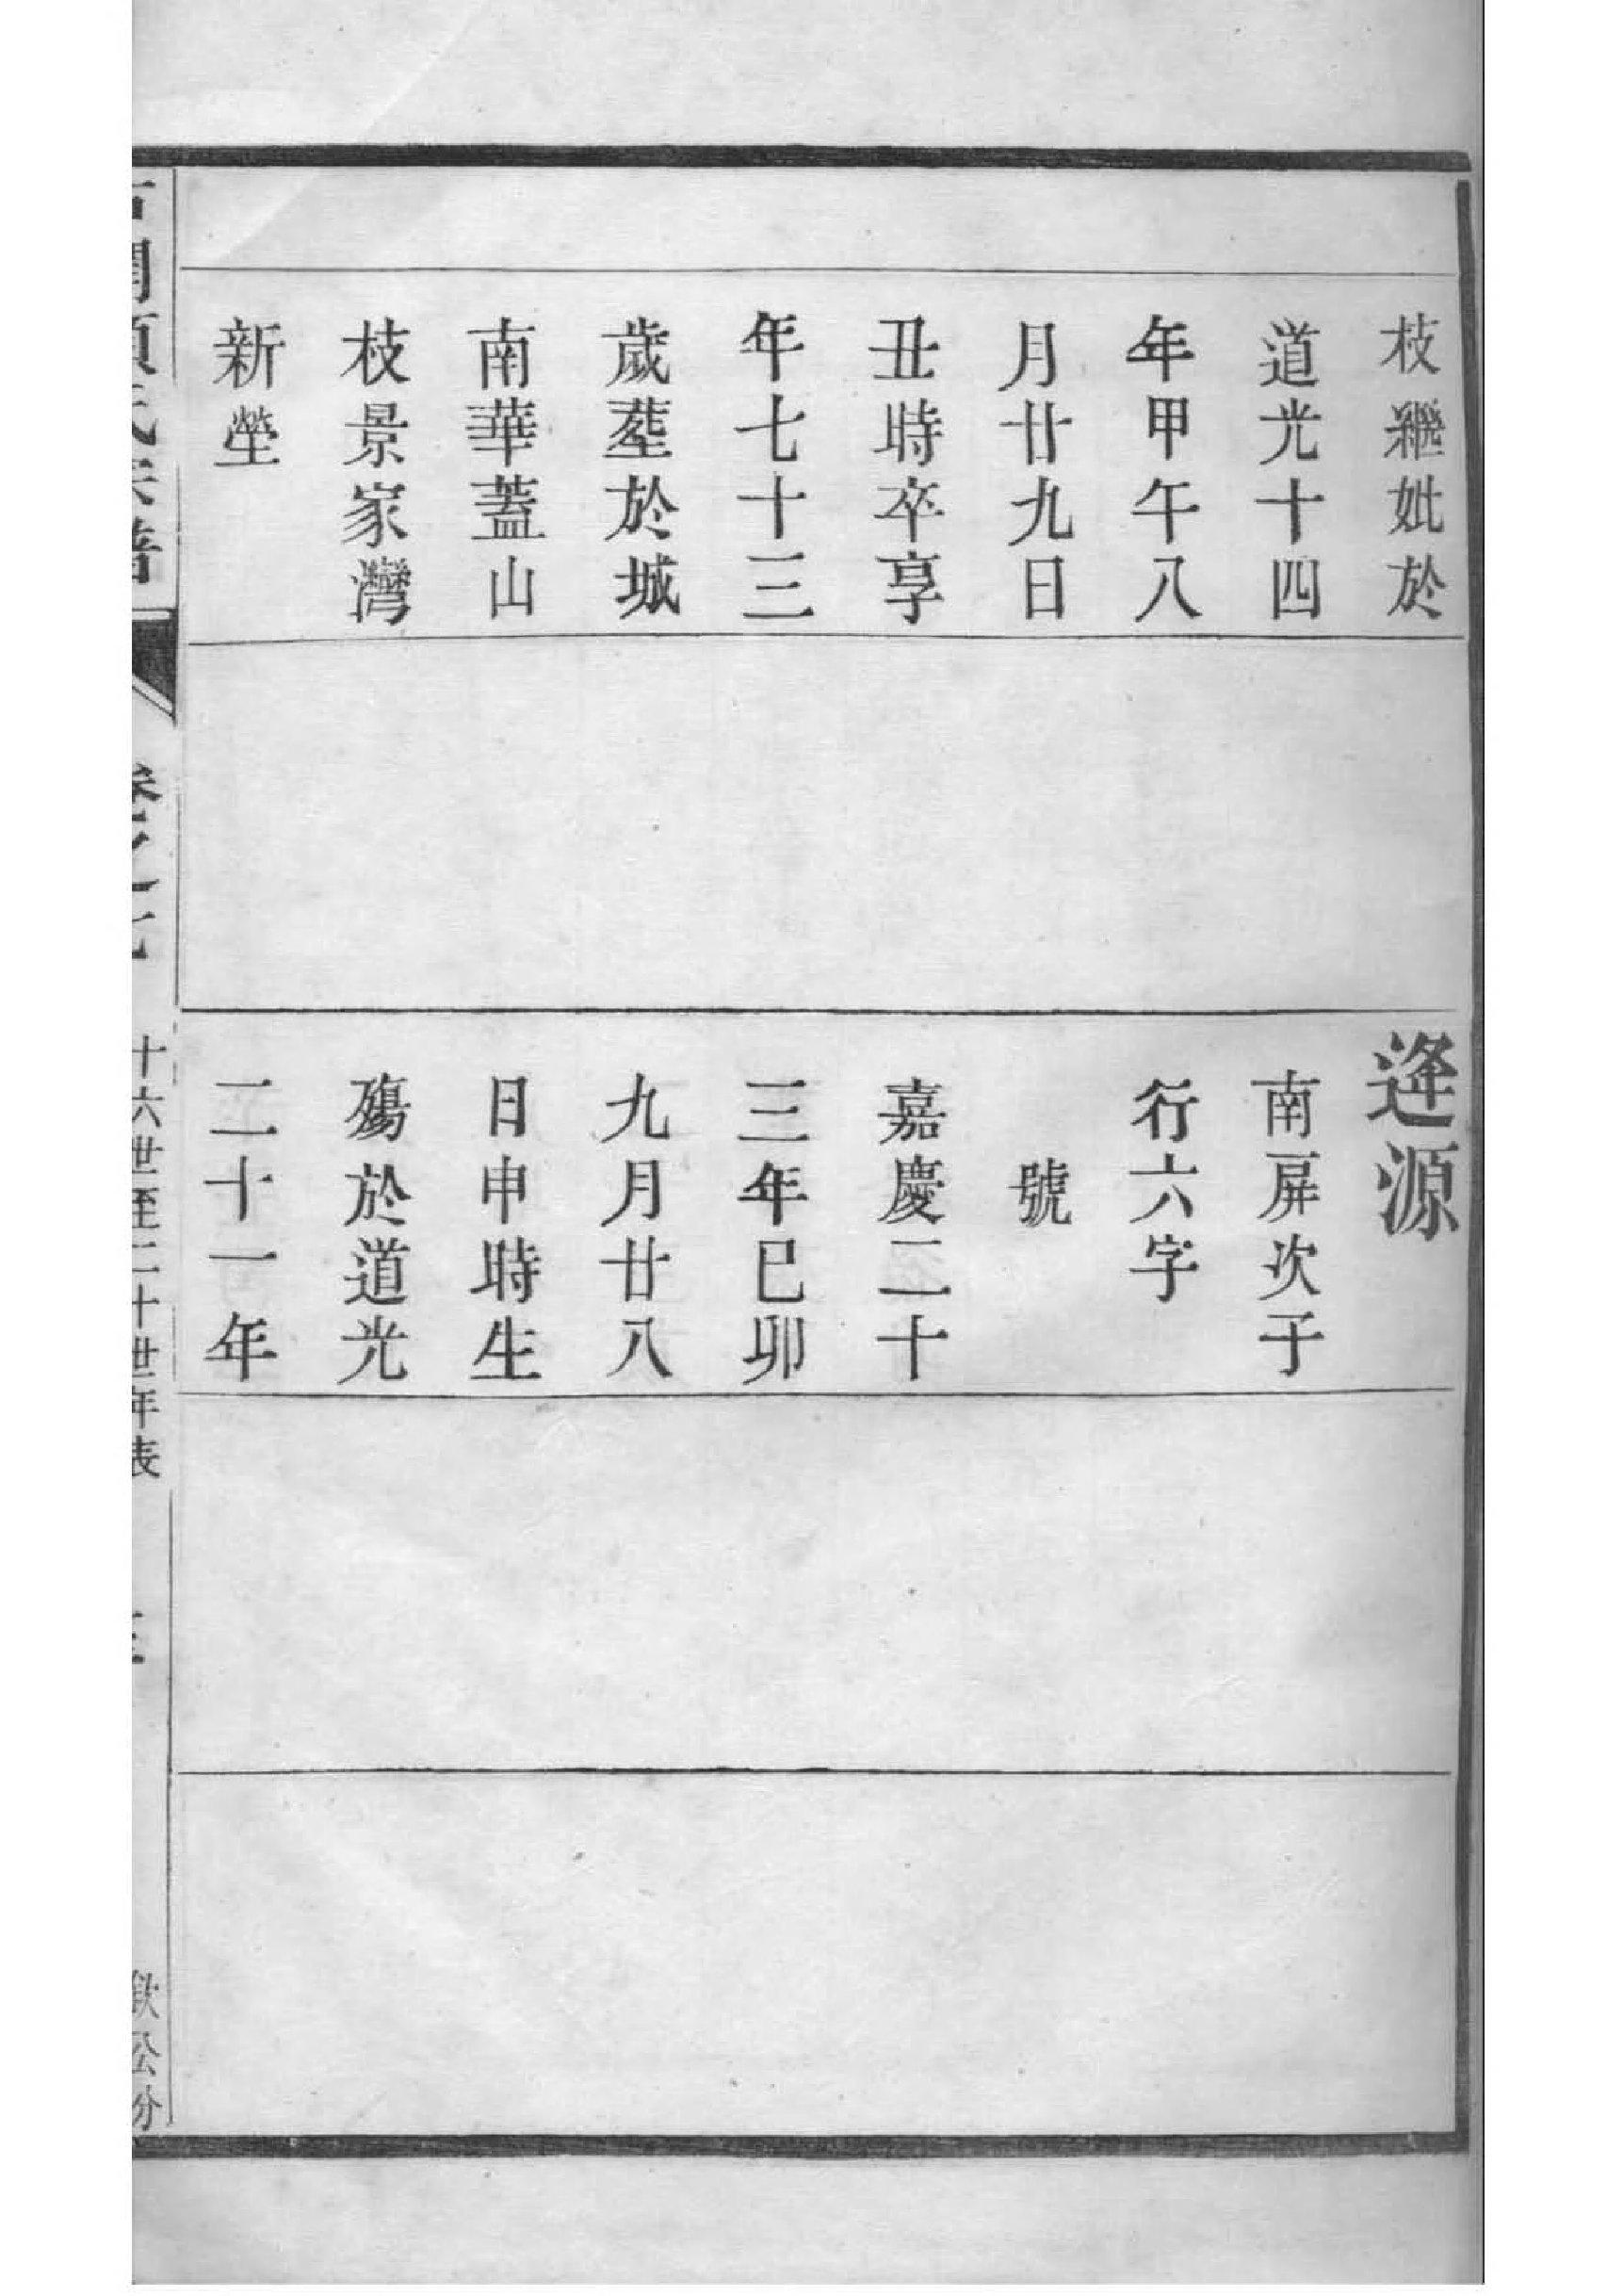 枝繼妣於
道光十四
年甲午八
月廿九日
丑時卒享
年七十三
歲塟於城
南華蓋山
枝景家灣
新塋
逢源
南屏次子
行六字
號
嘉慶二十
三年巳卯
九月廿八
日申時生
殤於道光
二十一年
氏宗譜
卷之七
十六世至二十世年表
欽公分